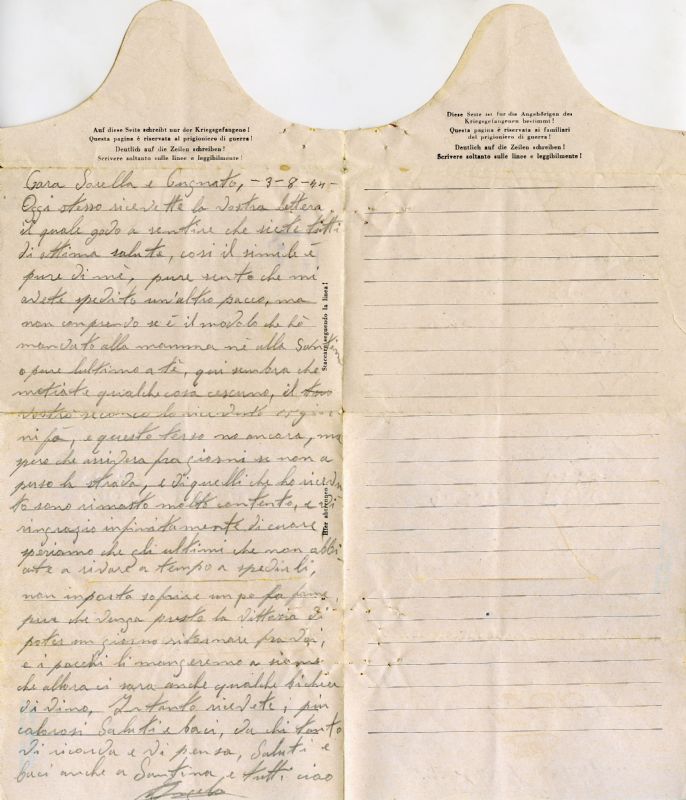 Auf diese Seite schreibt nur der Kriegsgefangene!
Questa pagina è riservata al prigioniero di guerra!
Deutlich auf die Zeilen schreiben!
Scrivere soltanto sulle linee e leggibilmente!
Cara Sorella e Cognato, - 3-8-44-
Oggi stesso ricevetti la vostra lettera
il quale godo a sentire che siete tutti
di ottima salute, cosi il simile è
pure di mè, pure sento che mi
avete spedito un'altro pacco, ma
non comprendo se è il modolo che hò
mandato alla mamma nè alla
o pure lultimo a tè, qui sembra che
qualche cosa, il
vostro secondo lo ricevuto
fà, e questo terso no ancora, ma
spero che arrivera fra giorni se non a
perso la strada, e di quelli che ho ricevu
to sono rimasto molto contento, e vi
ringrazio infinitamente di cuore
speriamo che gli ultimi che non abbi
ate a rivare a tempo a spedirli,
non inporta sofrire un po fa fame,
pur che venga presto la vittoria di
poter un giorno ritornare fra voi,
e i pacchi li mangeremo a sieme
che allora ci sara anche qualche bichiere
di vino, Intanto ricevete, più
calorosi Saluti e baci, da chi tanto
vi ricorda e vi pensa, Saluti e
baci anche a Santina e tutti ciao
Angelo
Staccare seguendo la linea!
Hier abtrennen!
Diese Seite ist für die Angehörigen des
Kriegsgefangenen bestimmt!
Questa pagina è riservata ai familiari
del prigioniero di guerra!
Deutlich auf die Zeilen schreiben!
Scrivere soltanto sulle linee e leggibilmente!